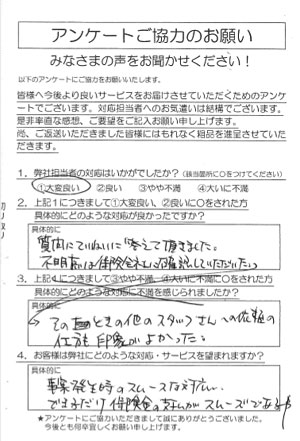 アンケートご協力のお願い
みなさまの声をお聞かせください！
以下のアンケートにご協力をお願いいたします。
皆様へ今後より良いサービスをお届けさせていただくためのアンケ
ートでございます。対応担当者へのお気遣いは結構でございます。
是非率直な感想、ご要望をご記入お願い申し上げます。
尚、ご返送いただきました皆様にはもれなく粗品を進呈させていた
だきます。
1．弊社担当者の対応はいかがでしたか？（該当箇所に○をつけてください）
①大変良い ②良い ③やや不満 ④大いに不満
2．上記1につきまして①大変良い、②良いに○をされた方
具体的にどのような対応が良かったですか？
具体的に
質問にていねいに答えて頂きました。
不明点は保険会社に確認していただいた。
3．上記1につきまして③やや不満、④大いに不満に○をされた方
具体的にどのような対応に不満を感じられましたか？
具体的に
そのときの他のスタッフさんへの依頼の
仕方 印象がよかった。
4．お客様は弊社にどのような対応・サービスを望まれますか？
具体的に
事故発生時のスムーズな対応。
できるだけ保険金の支払いがスムーズで
★アンケートにご協力いただきまして誠にありがとうございました。
今後とも何卒宜しくお願い申し上げます。